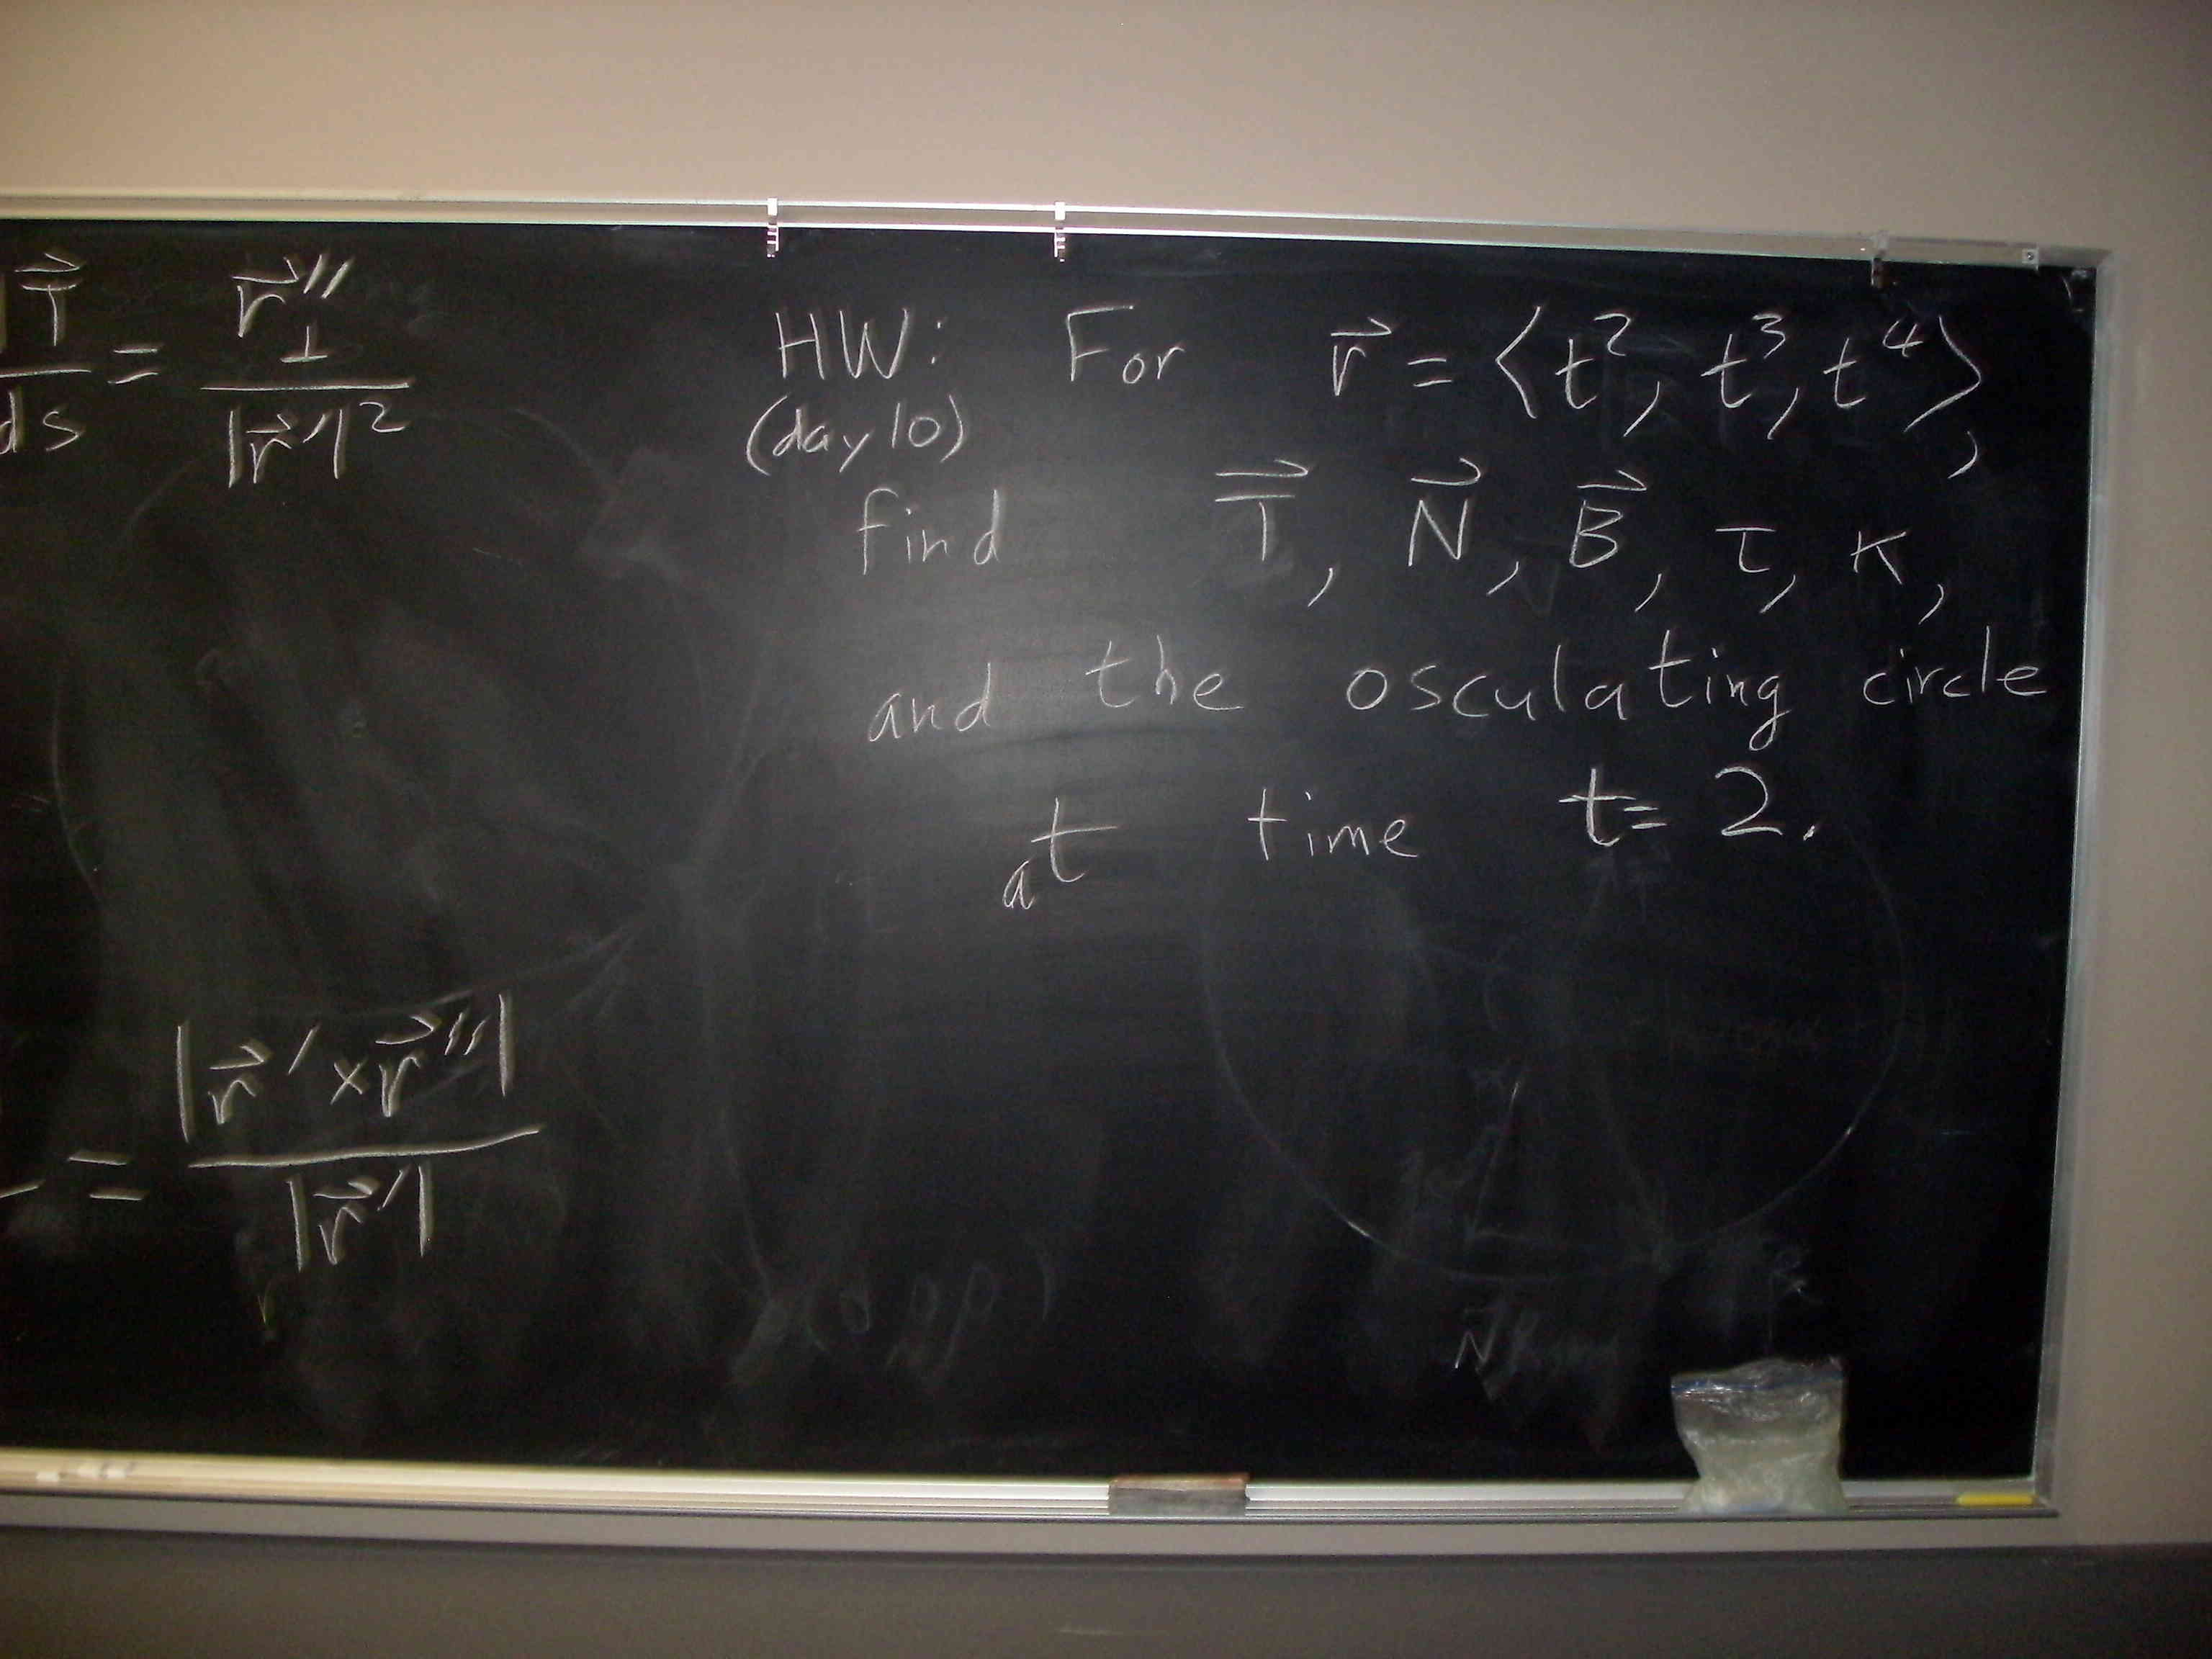 T⃗/ds = r⃗″⊥/|r⃗′|²
HW: For r⃗ = ⟨t², t³, t⁴⟩,
(day 10)
find T⃗, N⃗, B⃗, τ, κ,
and the osculating circle
at time t = 2.
= |r⃗′ × r⃗″|/|r⃗′|